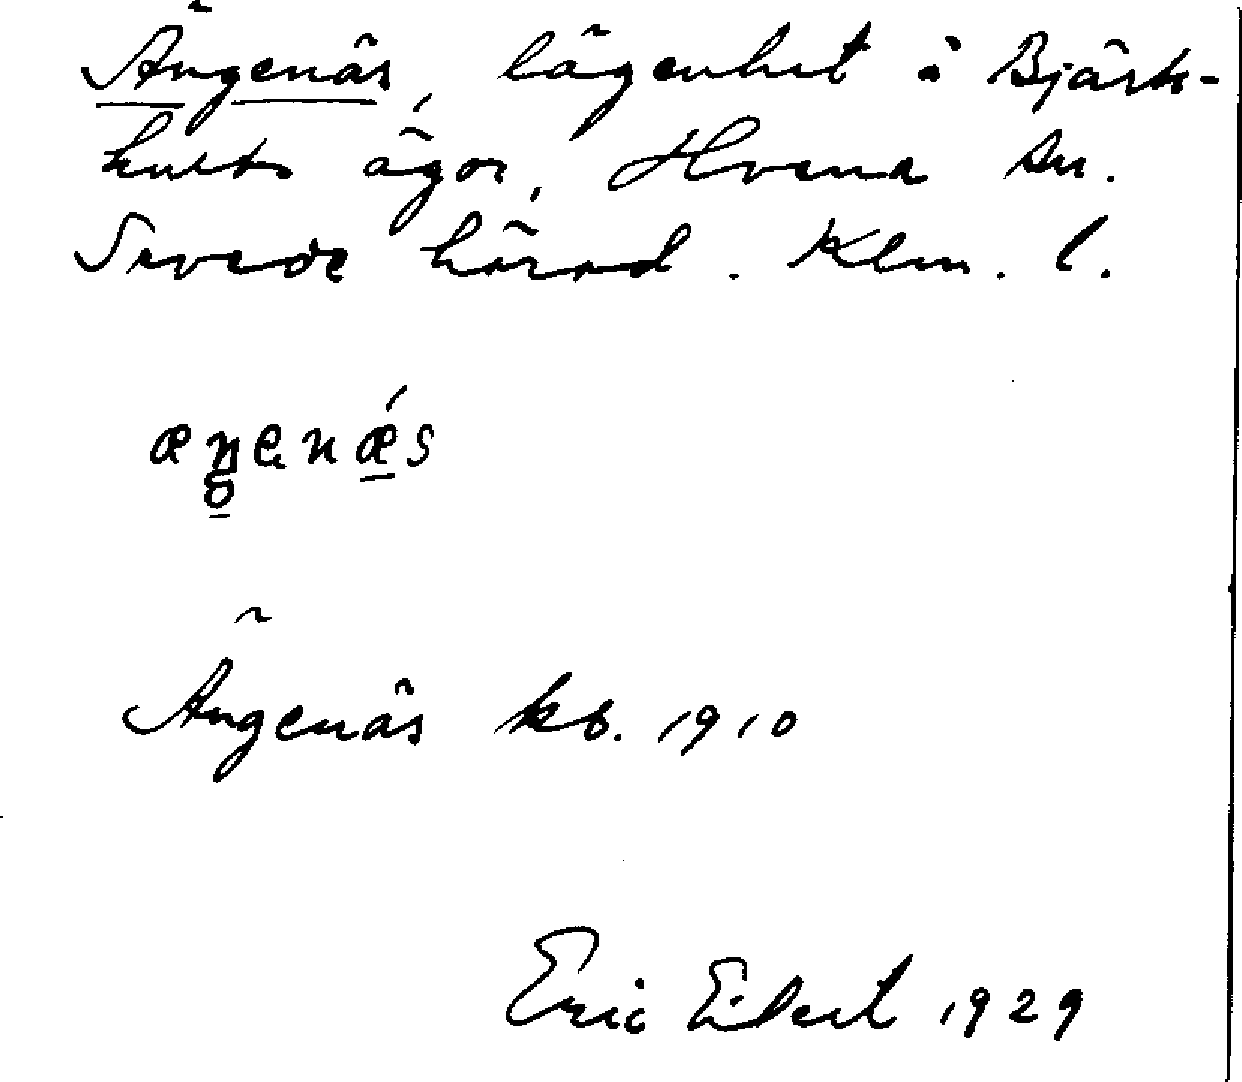 Ängenäs, lägenhet i Björk-
hults ägor, Hvena sn.
Sevede härad. Klm. l.
æŋenǽs
Ängenäs kb. 1910
Eric Elvert 1929